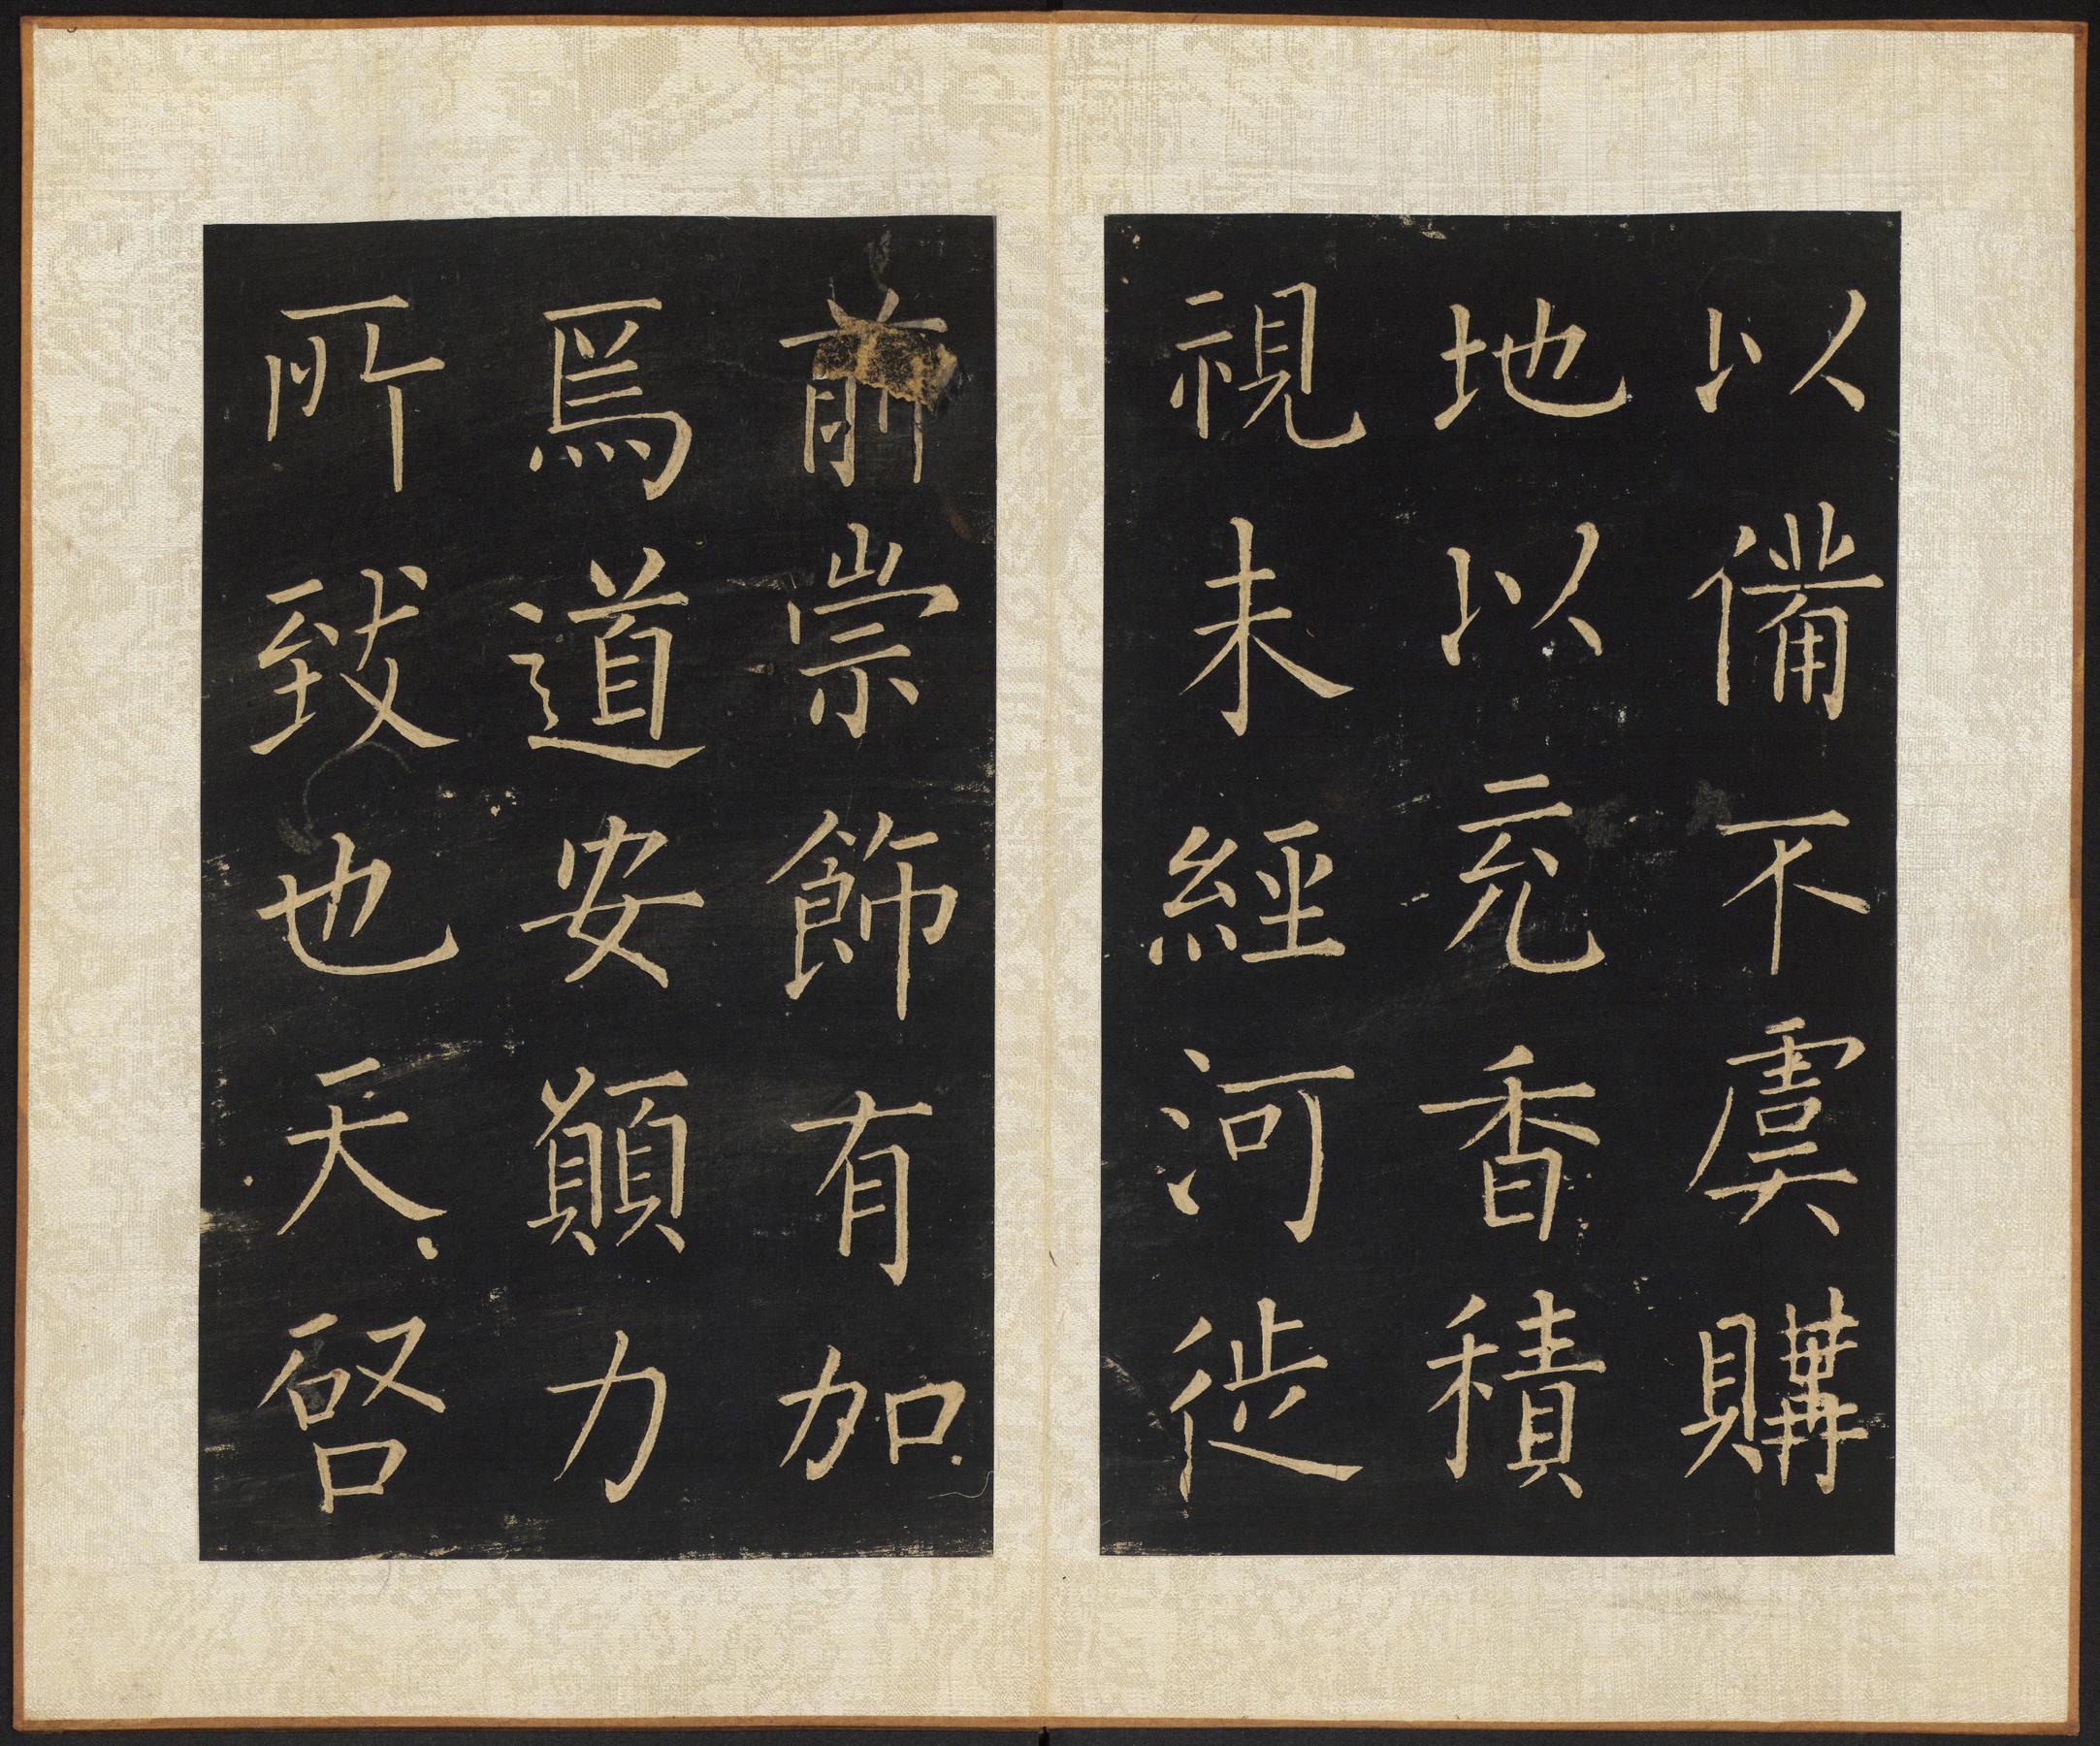 以備不虞購
地以充香積
視未經河徙
前崇飾有加
爲道安顛力
所致也天啓